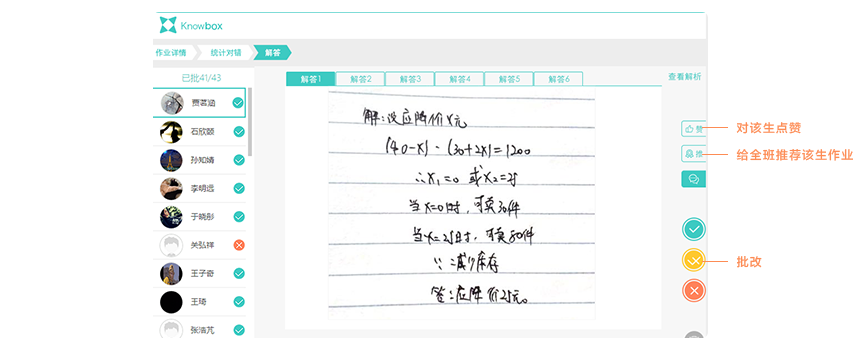 Knowbox
作业详情 统计对错 解答
已批41/43
解答1 解答2 解答3 解答4 解答5 解答6
查看解析
贾茗涵
石欣颐
孙知靖
李明远
于晓彤
关弘祥
王子奇
王琦
张洁芃
解:设应降价x元
(40-x)·(30+2x)=1200
∴x₁=0 或x₂=25
当x=0时,可卖30件
当x=25时,可卖80件
∵减少库存
答:应降价25元。
赞 对该生点赞
推 给全班推荐该生作业
批改